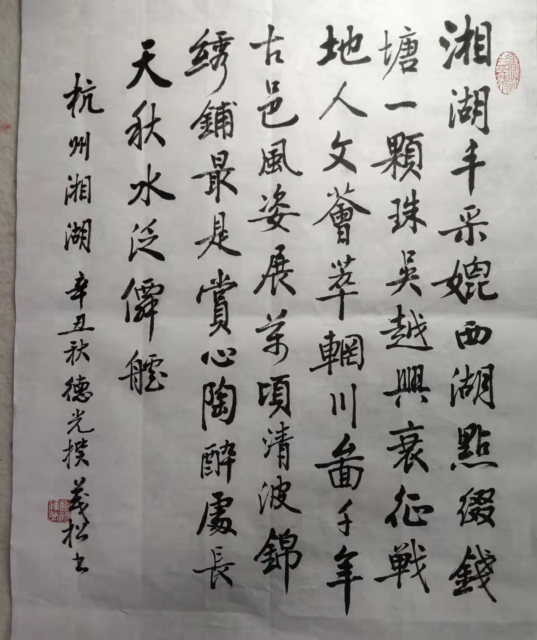 湘湖丰采媲西湖點缀錢
塘一顆珠吳越興衰征戰
地人文薈萃輞川畫千年
古邑風姿展万頃清波錦
绣鋪最是賞心陶醉處長
天秋水泛僲艖
杭州湘湖 辛丑秋德光撰 義松书